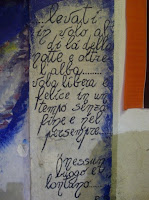 ...levati
in volo, al
di là della
notte e oltre
l'alba.......
vola libera e
felice in un
tempo senza
fine e nel
persempre....
nessun
luogo è
lontano....